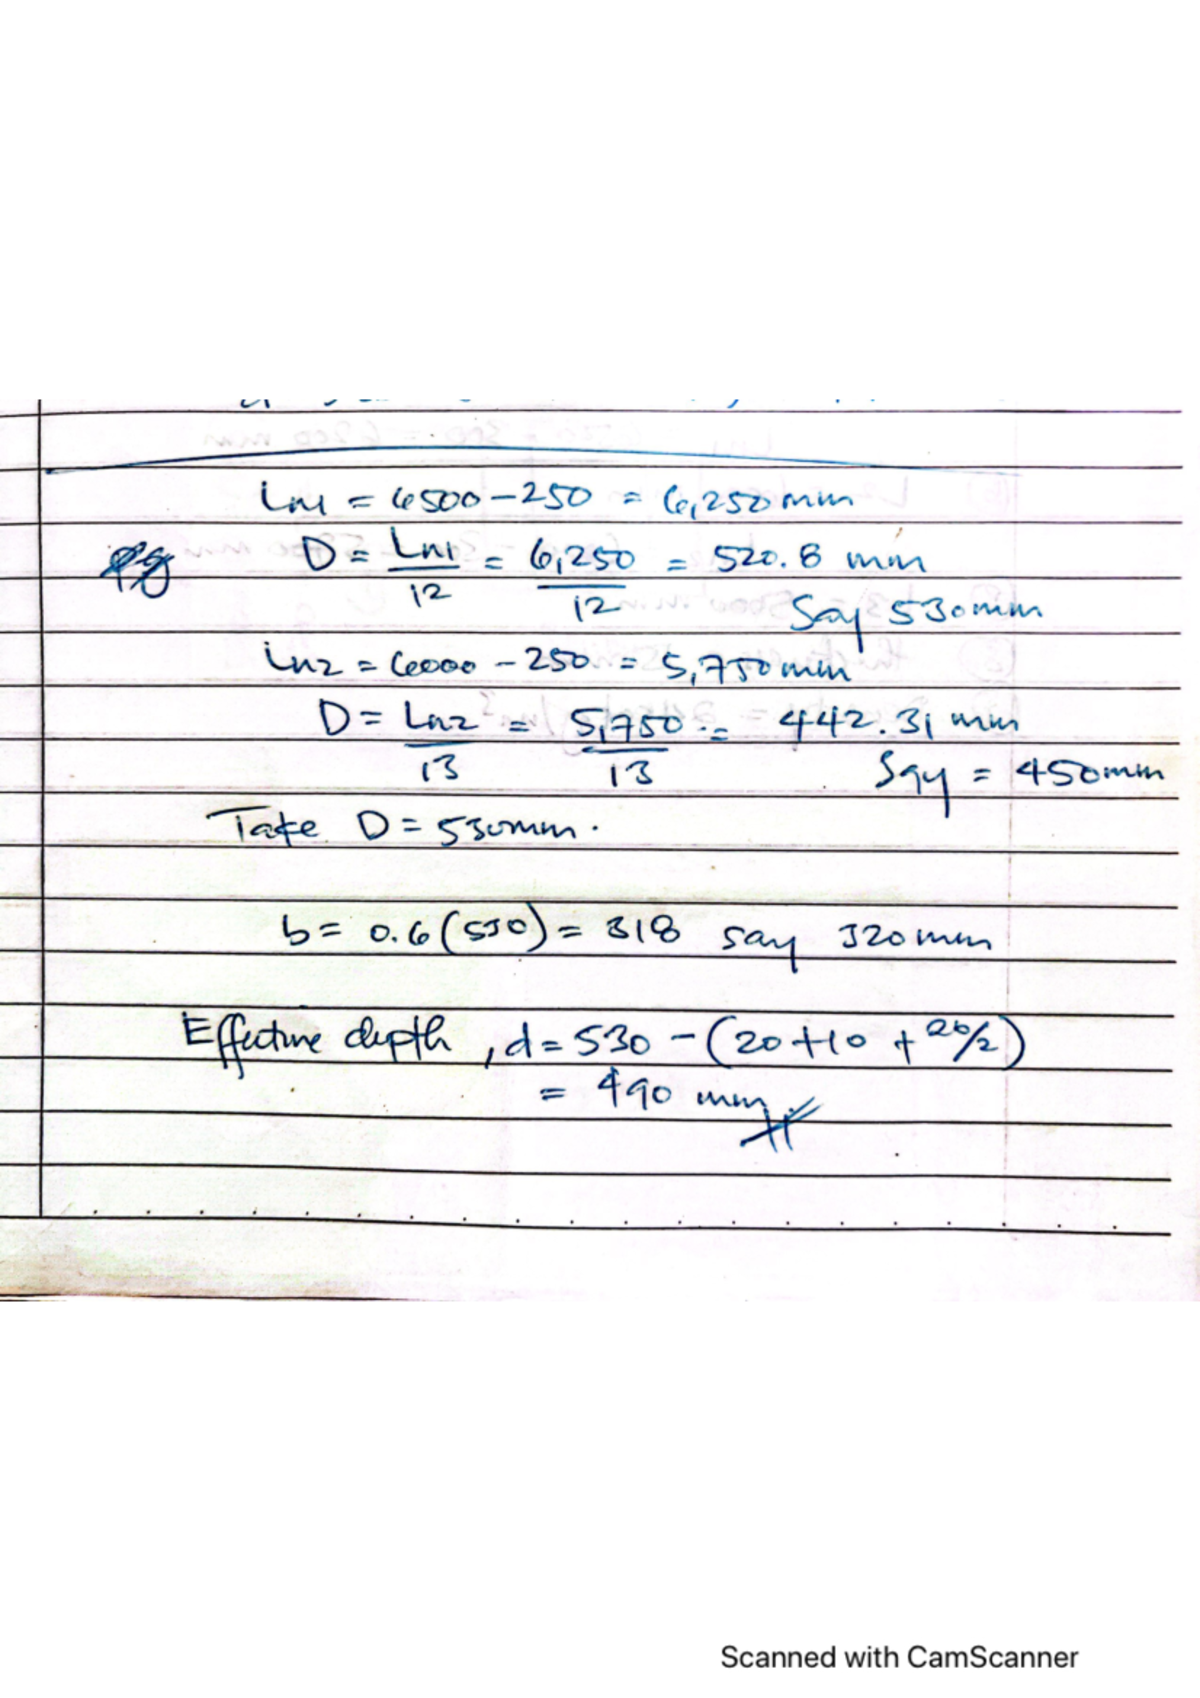 Ln1 = 6500 - 250 = 6,250mm
D = Ln1/12 = 6,250/12 = 520.8 mm
Say 530mm
Ln2 = 6000 - 250 = 5,750mm
D = Ln2/13 = 5,750/13 = 442.31 mm
Say = 450mm
Take D = 530mm.
b = 0.6(530) = 318 say 320mm
Effective depth, d = 530 - (20+10+20/2)
= 490 mm
Scanned with CamScanner